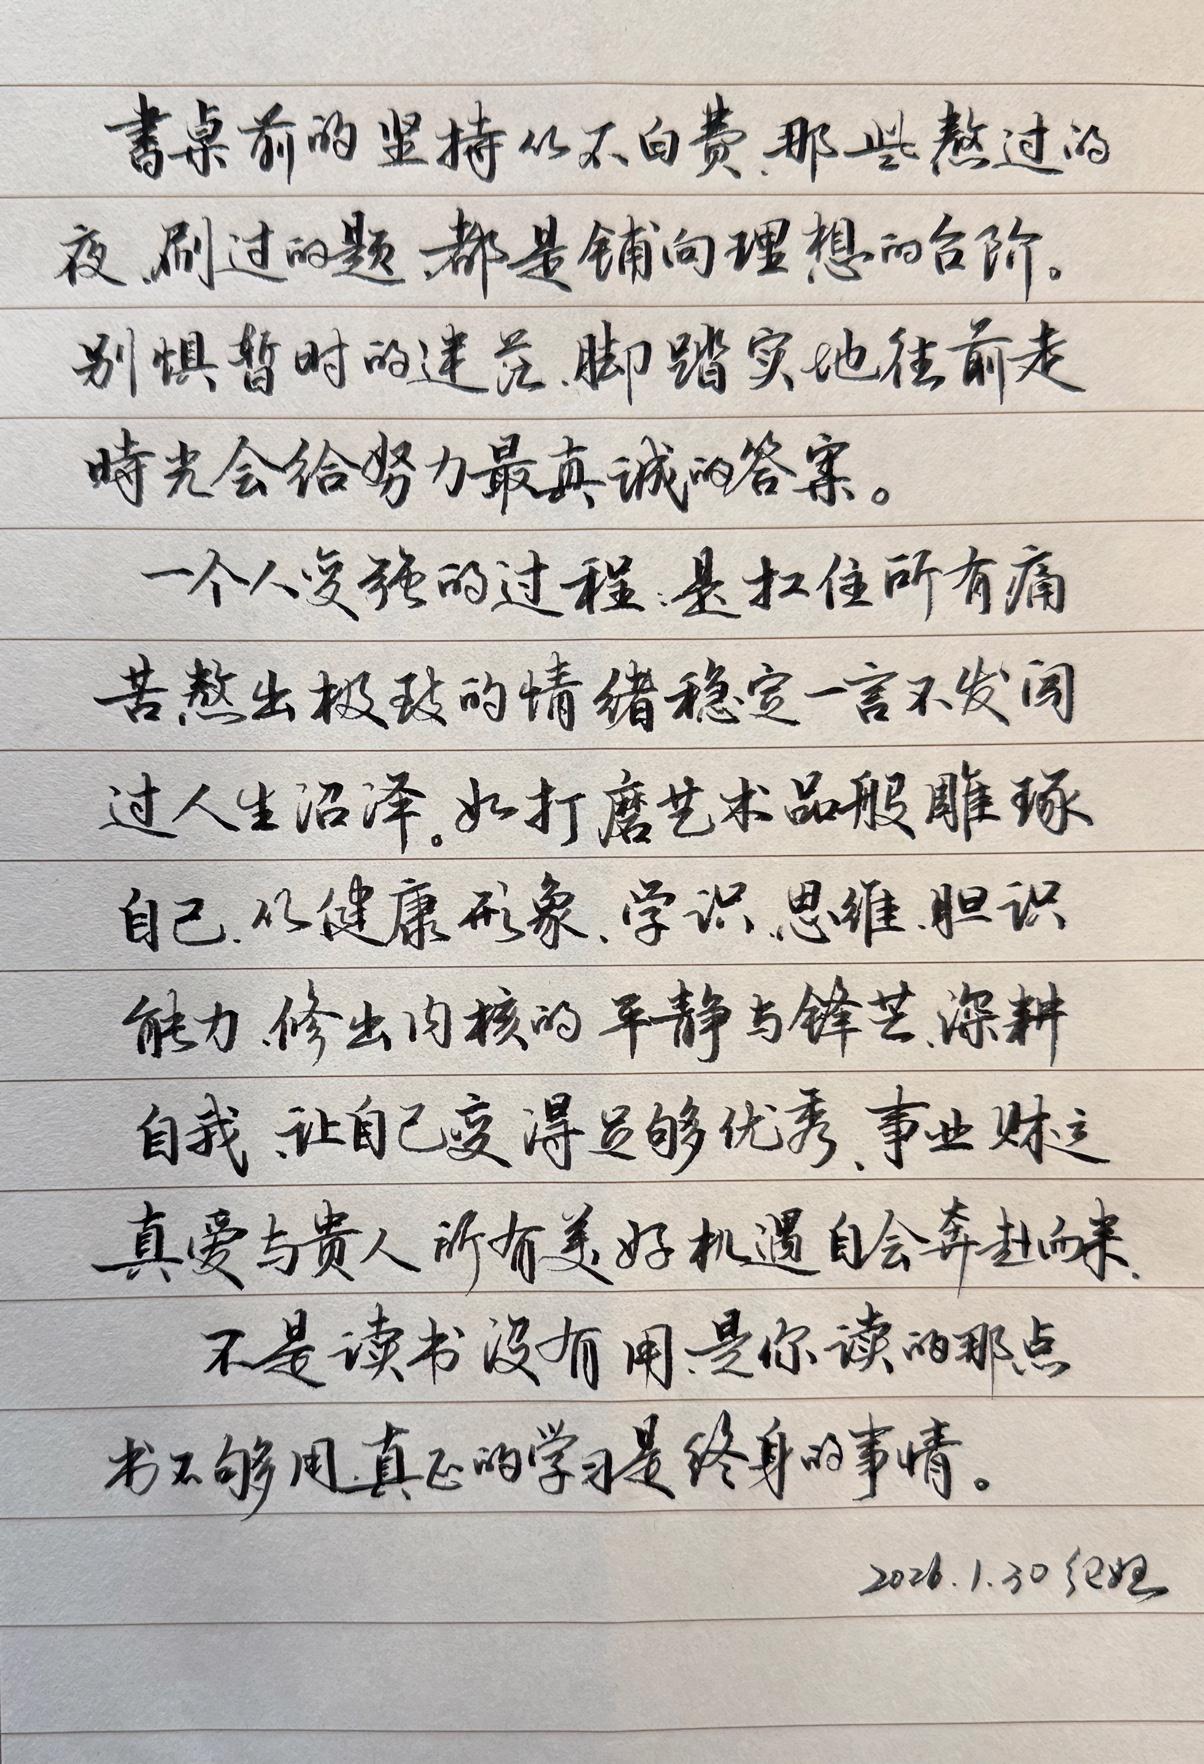 書桌前的坚持从不白费、那些熬过的
夜、刷过的题、都是铺向理想的台阶。
别惧暂时的迷茫、脚踏实地往前走
時光会给努力最真诚的答案。
一个人变强的过程、是扛住所有痛
苦熬出极致的情绪稳定一言不发闯
过人生沼泽。如打磨艺术品般雕琢
自己、从健康形象、学识、思维、胆识
能力、修出内核的平静与锋芒、深耕
自我、让自己变得足够优秀、事业财运
真爱与贵人所有美好机遇自会奔赴而来、
不是读书没有用、是你读的那点
书不够用、真正的学习是终身的事情。
2026.1.30